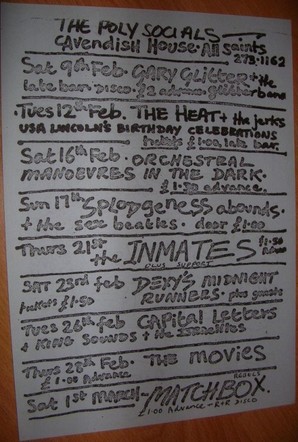 THE POLY SOCIALS
CAVENDISH HOUSE · All Saints
273·1162
Sat 9th Feb. GARY GLITTER + the
late bar. Disco. £2 advance. glitterbans
Tues 12th Feb. THE HEAT + the jerks
USA LINCOLN'S BIRTHDAY CELEBRATIONS
tickets £1.00, late bar.
Sat 16th Feb. ORCHESTRAL
MANOEVRES IN THE DARK.
£1.50 advance.
Sun 17th Splodgeness abounds.
+ the sex beatles. door £1.00
Thurs 21st the INMATES £1.50
PLUS SUPPORT
SAT 23rd feb DEXY'S MIDNIGHT
tickets £1.50 RUNNERS. plus guests
Tues 26th feb CAPITAL LETTERS
+ KING SOUNDS + the Israelites
Thurs 28th Feb. THE MOVIES
£1.00 Advance
Sat 1st March - MATCHBOX.
£1.00 ADVANCE - R&R DISCO